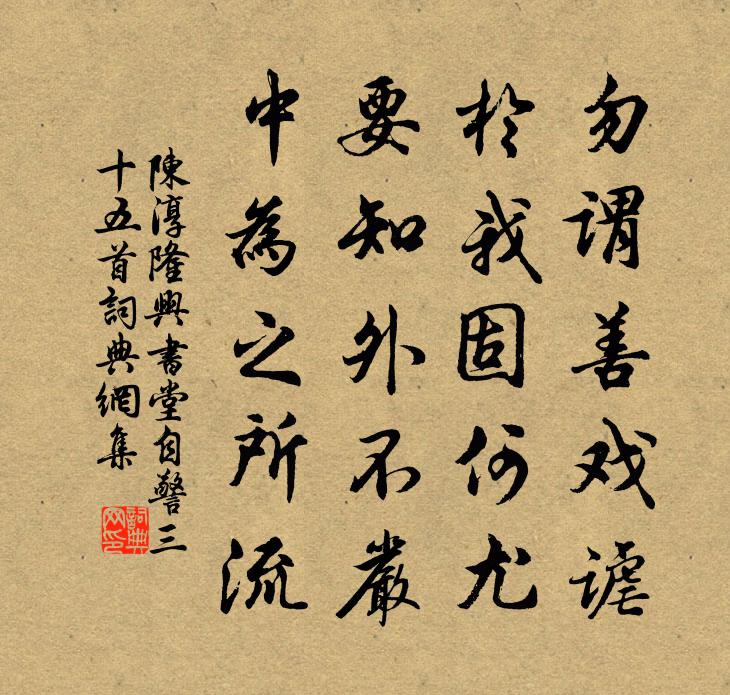 勿謂善戏謔
於我固何尤
要知外不嚴
中為之所流
陳淳隆興書堂自警三
十五首詞典網集
詞典
网印